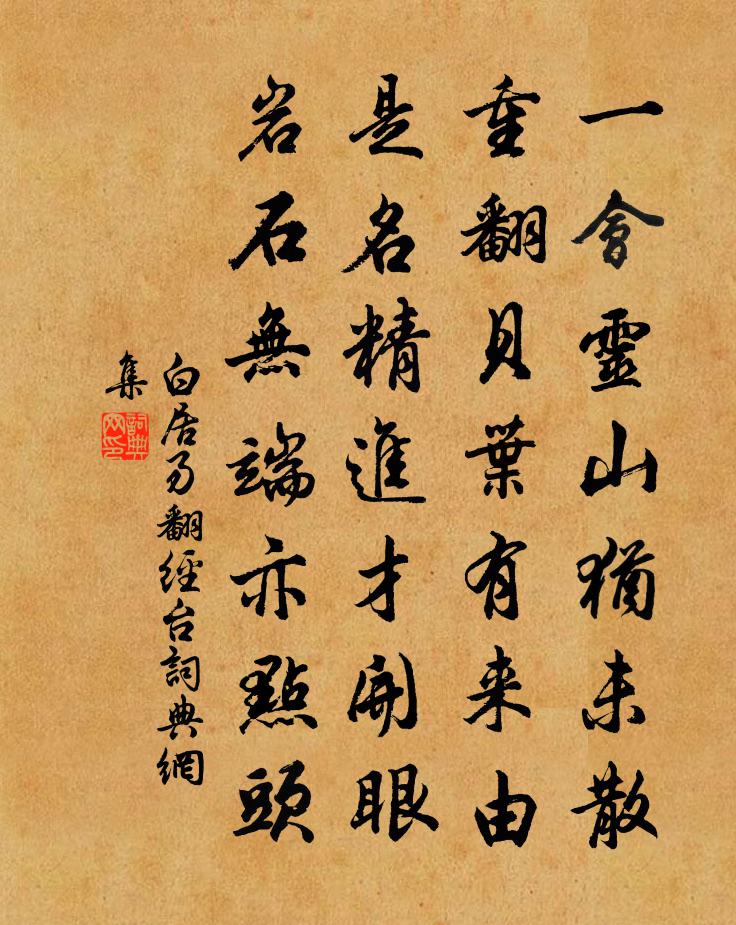 一會靈山猶未散
重翻貝葉有来由
是名精進才開眼
岩石無端亦點頭
白居易翻經台詞典網
集
詞典
网印